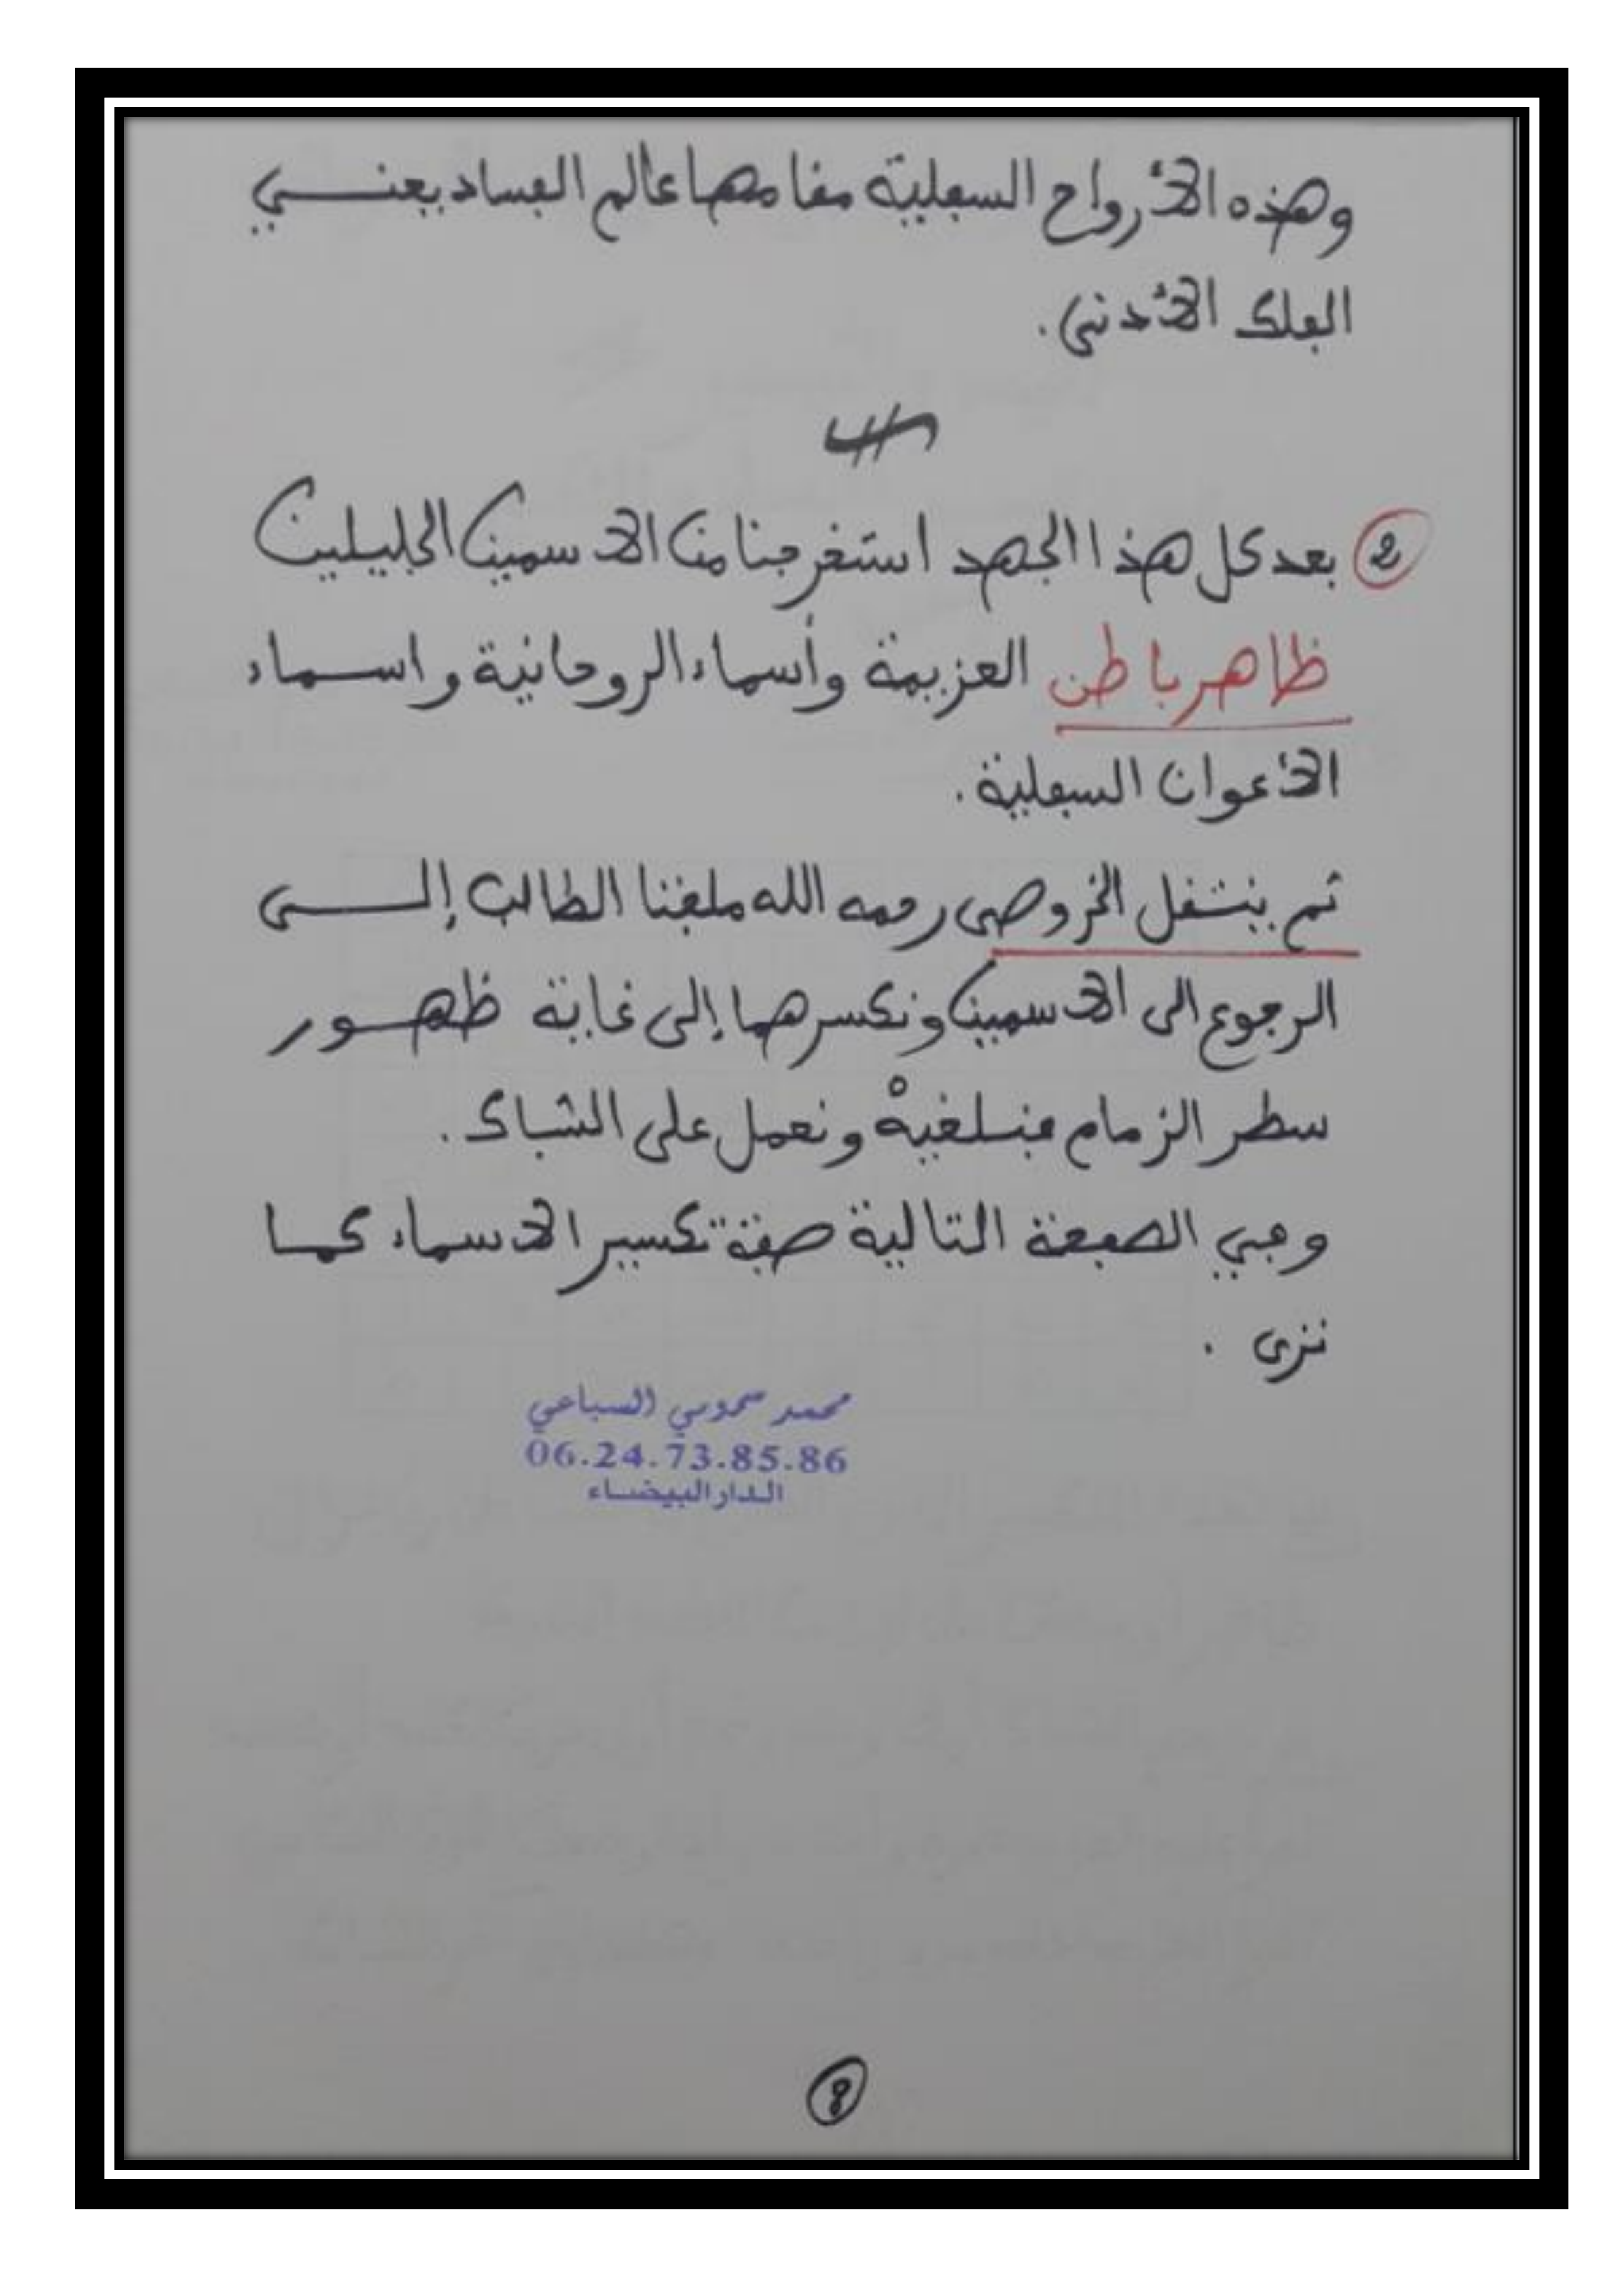 وهذه الأرواح السفلية مقامها عالم الفساد يعنـــي
الفلك الأدنى.
② بعد كل هذا الجهد استخرجنا من الاسمين الجليلين
ظاهر باطن العزيمة وأسماء الروحانية واسـماء
الأعوان السفلية.
تم ينتقل الخروصي رحمه الله ملقنا الطالب إلـــى
الرجوع الى الاسمين ونكسرهما إلى غاية ظهـور
سطر الزمام فنلغيه ونعمل على الشباك.
وفي الصفحة التالية صفة تكسير الاسماء كما
نرى.
محمد السباعي
06.24.73.85.86
الدار البيضاء
⑧